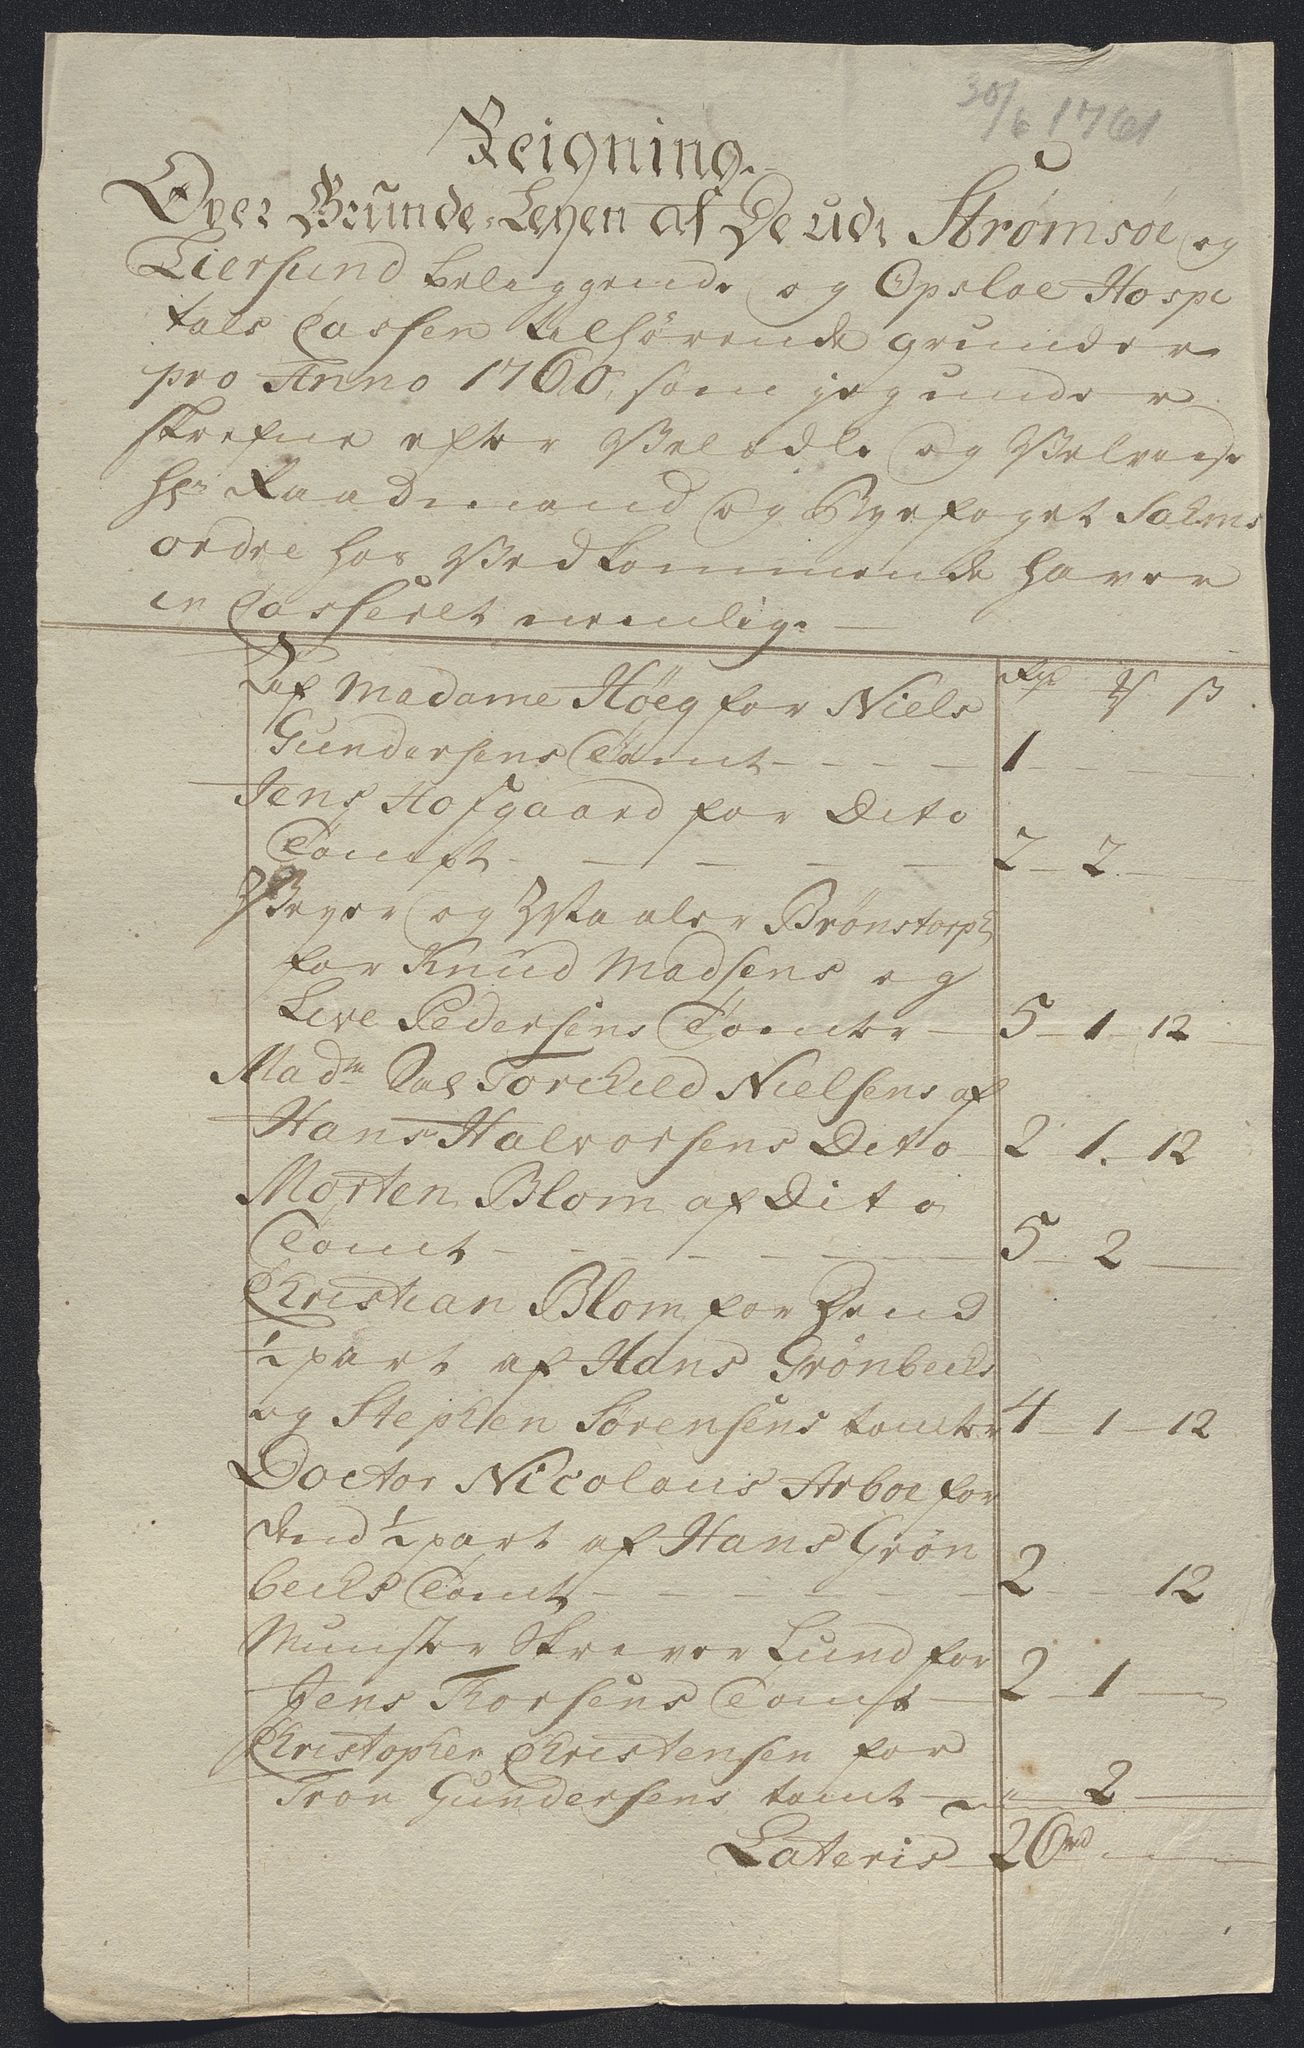 30/6 1761
Reigning.
Over Grunde-Leyen af De udi Strømsøe og
Tiersund beliggende og Opsloe Hospi
tals Cassen tilhørende grunder
pro Anno 1760, som jeg under
skrefne efter Velædle og Velvise
Hr Raadmand og Byefoget Sahms
ordre hos Vedkommende haver
in Casseret nemlig.
Af Madame Höeg for Niels
Rdl ß
Gundersens Tomt - - - - 1 - - -
Jens Hofgaard for Dito
Tomft - - - - - 2 - 2 -
Beyer og Staaler Brönstorph
for Knud Madsens og
Live Pedersens Tomter - 5 - 1 - 12
Madm Sal Torchild Nielsens af
Hans Halvorsens Dito 2 - 1 - 12
Morten Blom af Dito
Tomt - - - - - - 5 - 2 -
Christian Blom for Dend
1/2 part af Hans Grönbechs
og Stephen Sörensens tomter 4 - 1 - 12
Doctor Nicolaus Arboe for
dend 1/2 part af Hans Grön
bechs Tomt - - - 2 - - 12
Munster Skriver Lund for
Jens Korsens Tomt - 2 - 1 -
Christopher Christensen for
Tron Gundersens tomt - " 2 -
Lateris 26 rd - -